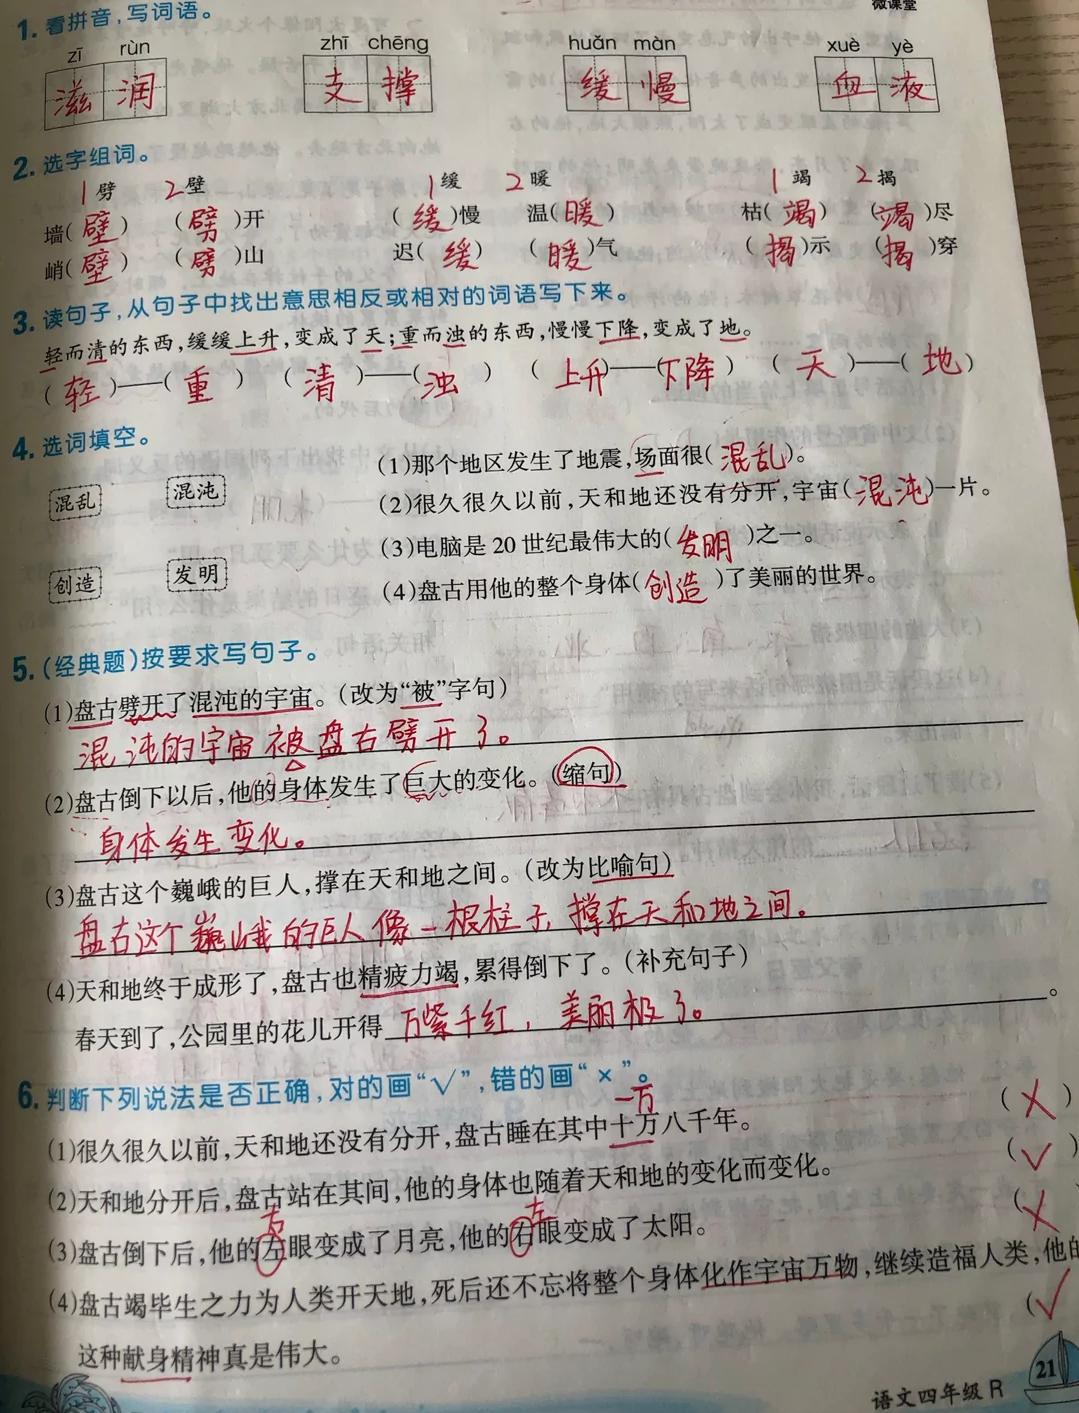 微课堂
1. 看拼音,写词语。
zī rùn zhī chēng huǎn màn xuè yè
滋润 支撑 缓慢 血液
2. 选字组词。
1劈 2壁 1缓 2暖 1竭 2揭
墙(壁) (劈)开 (缓)慢 温(暖) 枯(竭) (竭)尽
峭(壁) (劈)山 迟(缓) (暖)气 (揭)示 (揭)穿
3. 读句子,从句子中找出意思相反或相对的词语写下来。
轻而清的东西,缓缓上升,变成了天;重而浊的东西,慢慢下降,变成了地。
(轻)——(重) (清)——(浊) (上升)——(下降) (天)——(地)
4. 选词填空。
混乱 混沌
创造 发明
(1)那个地区发生了地震,场面很(混乱)。
(2)很久很久以前,天和地还没有分开,宇宙(混沌)一片。
(3)电脑是20世纪最伟大的(发明)之一。
(4)盘古用他的整个身体(创造)了美丽的世界。
5. (经典题)按要求写句子。
(1)盘古劈开了混沌的宇宙。(改为“被”字句)
混沌的宇宙被盘古劈开了。
(2)盘古倒下以后,他的身体发生了巨大的变化。(缩句)
身体发生变化。
(3)盘古这个巍峨的巨人,撑在天和地之间。(改为比喻句)
盘古这个巍峨的巨人像一根柱子,撑在天和地之间。
(4)天和地终于成形了,盘古也精疲力竭,累得倒下了。(补充句子)
春天到了,公园里的花儿开得万紫千红,美丽极了。。
6. 判断下列说法是否正确,对的画“√”,错的画“×”。
一万
(1)很久很久以前,天和地还没有分开,盘古睡在其中十万八千年。 (×)
(2)天和地分开后,盘古站在其间,他的身体也随着天和地的变化而变化。 (√)
右 左
(3)盘古倒下后,他的左眼变成了月亮,他的右眼变成了太阳。 (×)
(4)盘古竭毕生之力为人类开天地,死后还不忘将整个身体化作宇宙万物,继续造福人类,他的
这种献身精神真是伟大。 (√)
语文四年级 R 21